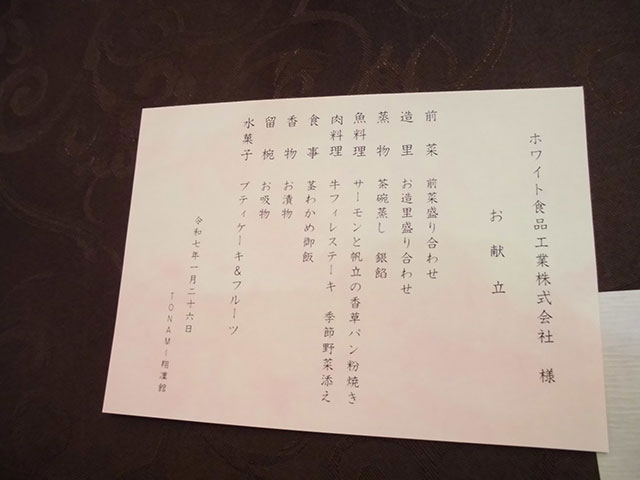 ホワイト食品工業株式会社 様
お献立
前菜 前菜盛り合わせ
造里 お造里盛り合わせ
蒸物 茶碗蒸し 銀餡
魚料理 サーモンと帆立の香草パン粉焼き
肉料理 牛フィレステーキ 季節野菜添え
食事 茎わかめ御飯
香物 お漬物
留椀 お吸物
水菓子 プティケーキ&フルーツ
令和七年一月二十六日
TONAMI翔凜館